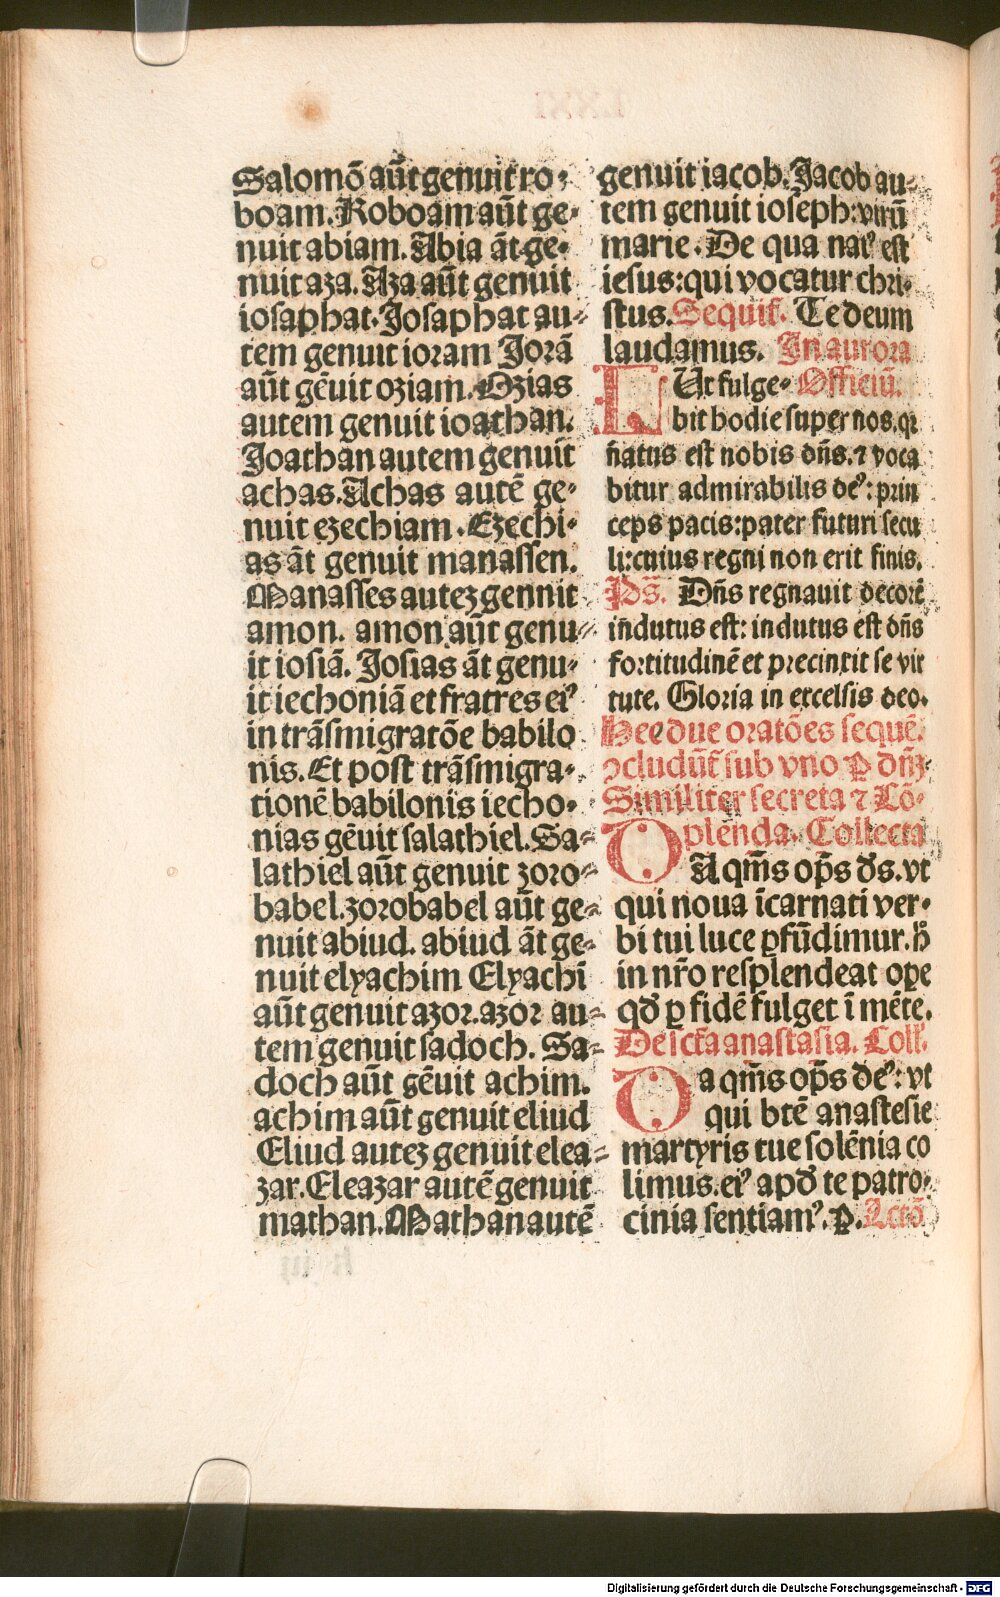 Salomō aūt genuit ro-
boam. Roboam aūt ge-
nuit abiam. Abia āt ge-
nuit aza. Aza aūt genuit
iosaphat. Josaphat au-
tem genuit ioram Jorā
aūt gēuit oziam. Ozias
autem genuit ioathan.
Joathan autem genuit
achas. Achas autē ge-
nuit ezechiam. Ezechi-
as āt genuit manassen.
Manasses autez gennit
amon. amon aūt genu-
it iosiā. Josias āt genu-
it iechoniā et fratres eiꝰ
in trāsmigratōe babilo
nis. Et post trāsmigra-
tionē babilonis iecho-
nias gēuit salathiel. Sa-
lathiel aūt genuit zoro-
babel. zorobabel aūt ge-
nuit abiud. abiud āt ge-
nuit elyachim Elyachī
aūt genuit azor. azor au-
tem genuit sadoch. Sa-
doch aūt gēuit achim.
achim aūt genuit eliud
Eliud autez genuit elea-
zar. Eleazar autē genuit
mathan. Mathan autē
genuit iacob. Jacob au-
tem genuit ioseph: virū
marie. De qua natꝰ est
iesus: qui vocatur chri-
stus. Sequit̄. Te deum
laudamus. In aurora
LUt fulge- Officiū.
bit hodie super nos. qꝛ
natus est nobis dn̄s. ⁊ voca
bitur admirabilis deꝰ: prin
ceps pacis: pater futuri secu
li: cuius regni non erit finis.
Ps̄. Dn̄s regnauit decorē
indutus est: indutus est dn̄s
fortitudinē et precinxit se vir
tute. Gloria in excelsis deo.
Hee due oratōes sequē.
ꝯcludūt̄ sub vno ꝑ dn̄z.
Similiter secreta ⁊ Cō-
plenda. Collecta
DA qm̄s op̄s ds̄. vt
qui noua īcarnati ver-
bi tui luce ꝑfūdimur. h̊
in nr̄o resplendeat oꝑe
qd̄ ꝑ fidē fulget ī mēte.
De sctā anastasia. Coll̄.
Da qm̄s op̄s deꝰ: vt
qui btē anastesie
martyris tue solēnia co
limus. eiꝰ apd̄ te patro-
cinia sentiamꝰ. ꝑ. Lctō